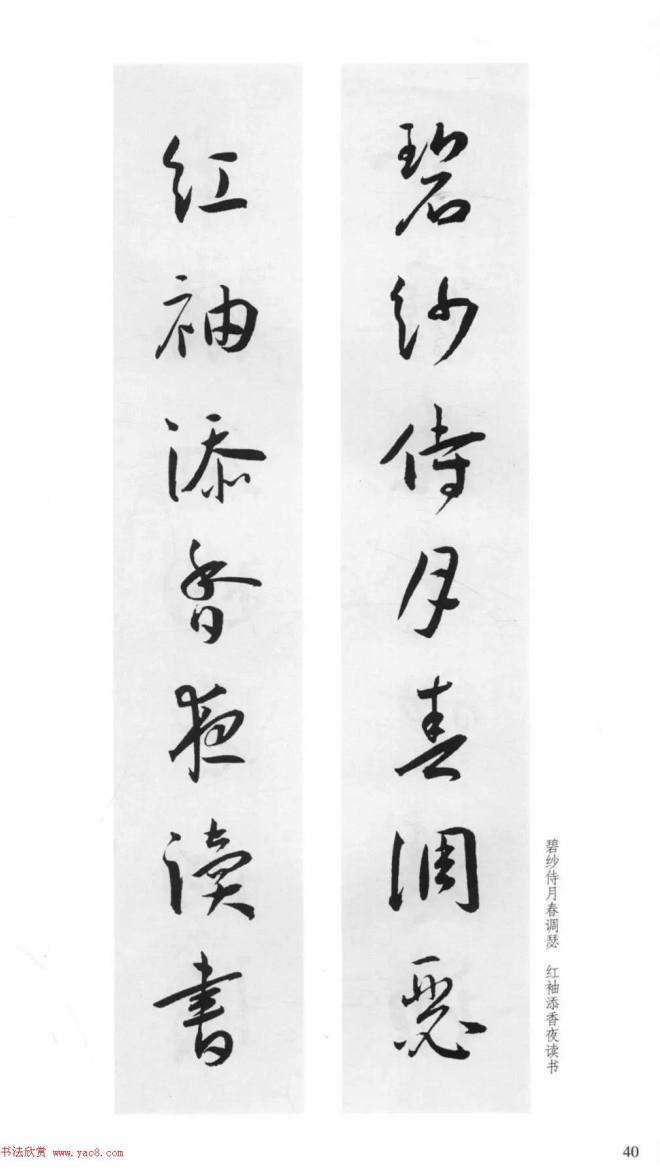 碧纱侍月春调瑟
红袖添香夜读书
碧纱侍月春调瑟 红袖添香夜读书
书法欣赏 www.yac8.com
40